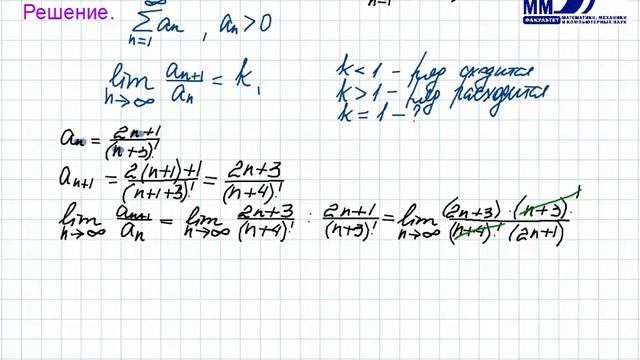 Решение.
∞
∑ aₙ , aₙ>0
n=1
n=1
ММ
ФАКУЛЬТЕТ
МАТЕМАТИКИ, МЕХАНИКИ
И КОМПЬЮТЕРНЫХ НАУК
lim aₙ₊₁/aₙ = k,
n→∞
k<1 – ряд сходится
k>1 – ряд расходится
k=1 – ?
aₙ = (2n+1)/(n+3)!
aₙ₊₁ = (2(n+1)+1)/(n+1+3)! = (2n+3)/(n+4)!
lim aₙ₊₁/aₙ = lim (2n+3)/(n+4)! : (2n+1)/(n+3)! = lim ((2n+3)·(n+3)!)/((n+4)! (2n+1))
n→∞ n→∞ n→∞